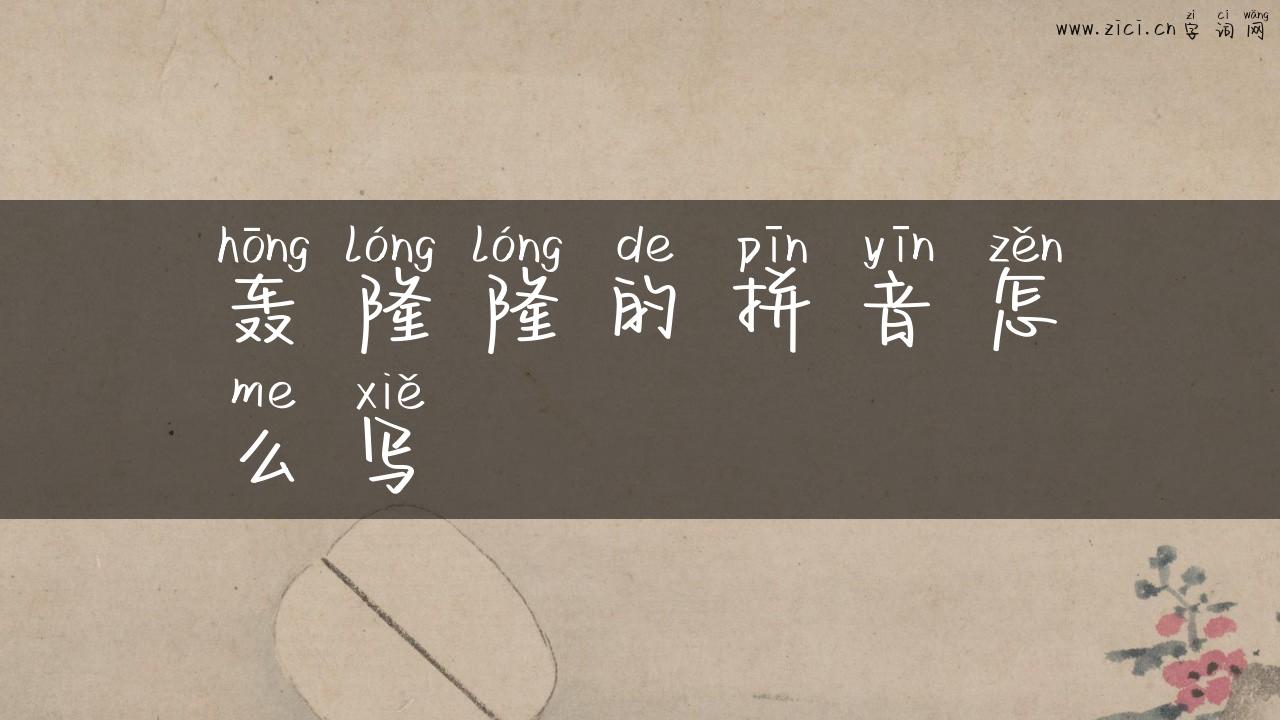 zì cí wǎng
www.zici.cn 字 词 网
hōng lóng lóng de pīn yīn zěn
轰 隆 隆 的 拼 音 怎
me xiě
么 写